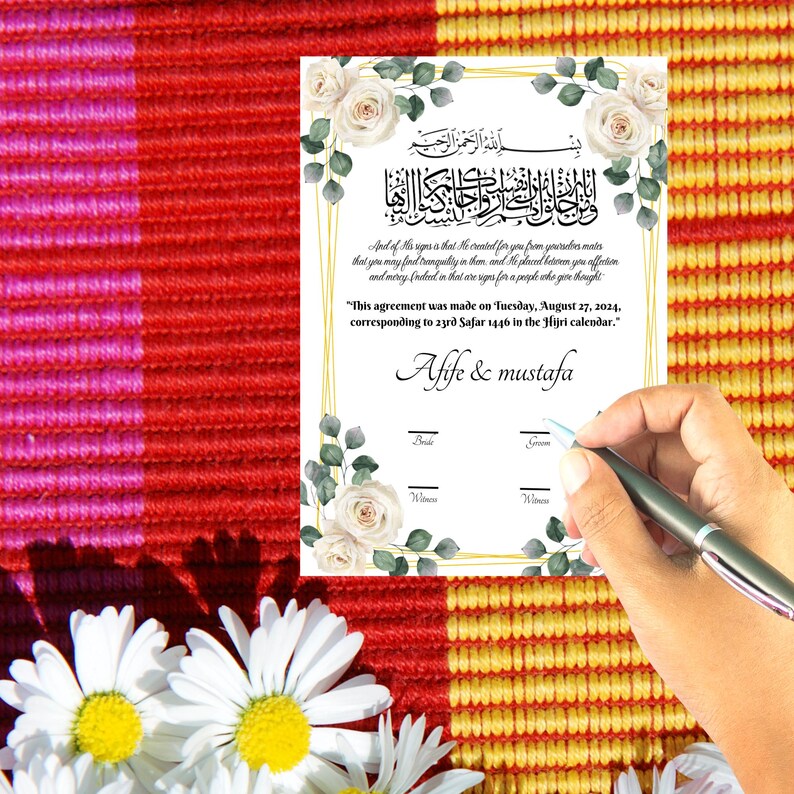 بِسْمِ اللهِ الرَّحْمٰنِ الرَّحِيْمِ
ومن آياته أن خلق لكم من أنفسكم أزواجا لتسكنوا إليها
And of His signs is that He created for you from yourselves mates
that you may find tranquility in them; and He placed between you affection
and mercy. Indeed, in that are signs for a people who give thought."
"This agreement was made on Tuesday, August 27, 2024,
corresponding to 23rd Safar 1446 in the Hijri calendar."
Afife & mustafa
Bride Groom
Witness Witness